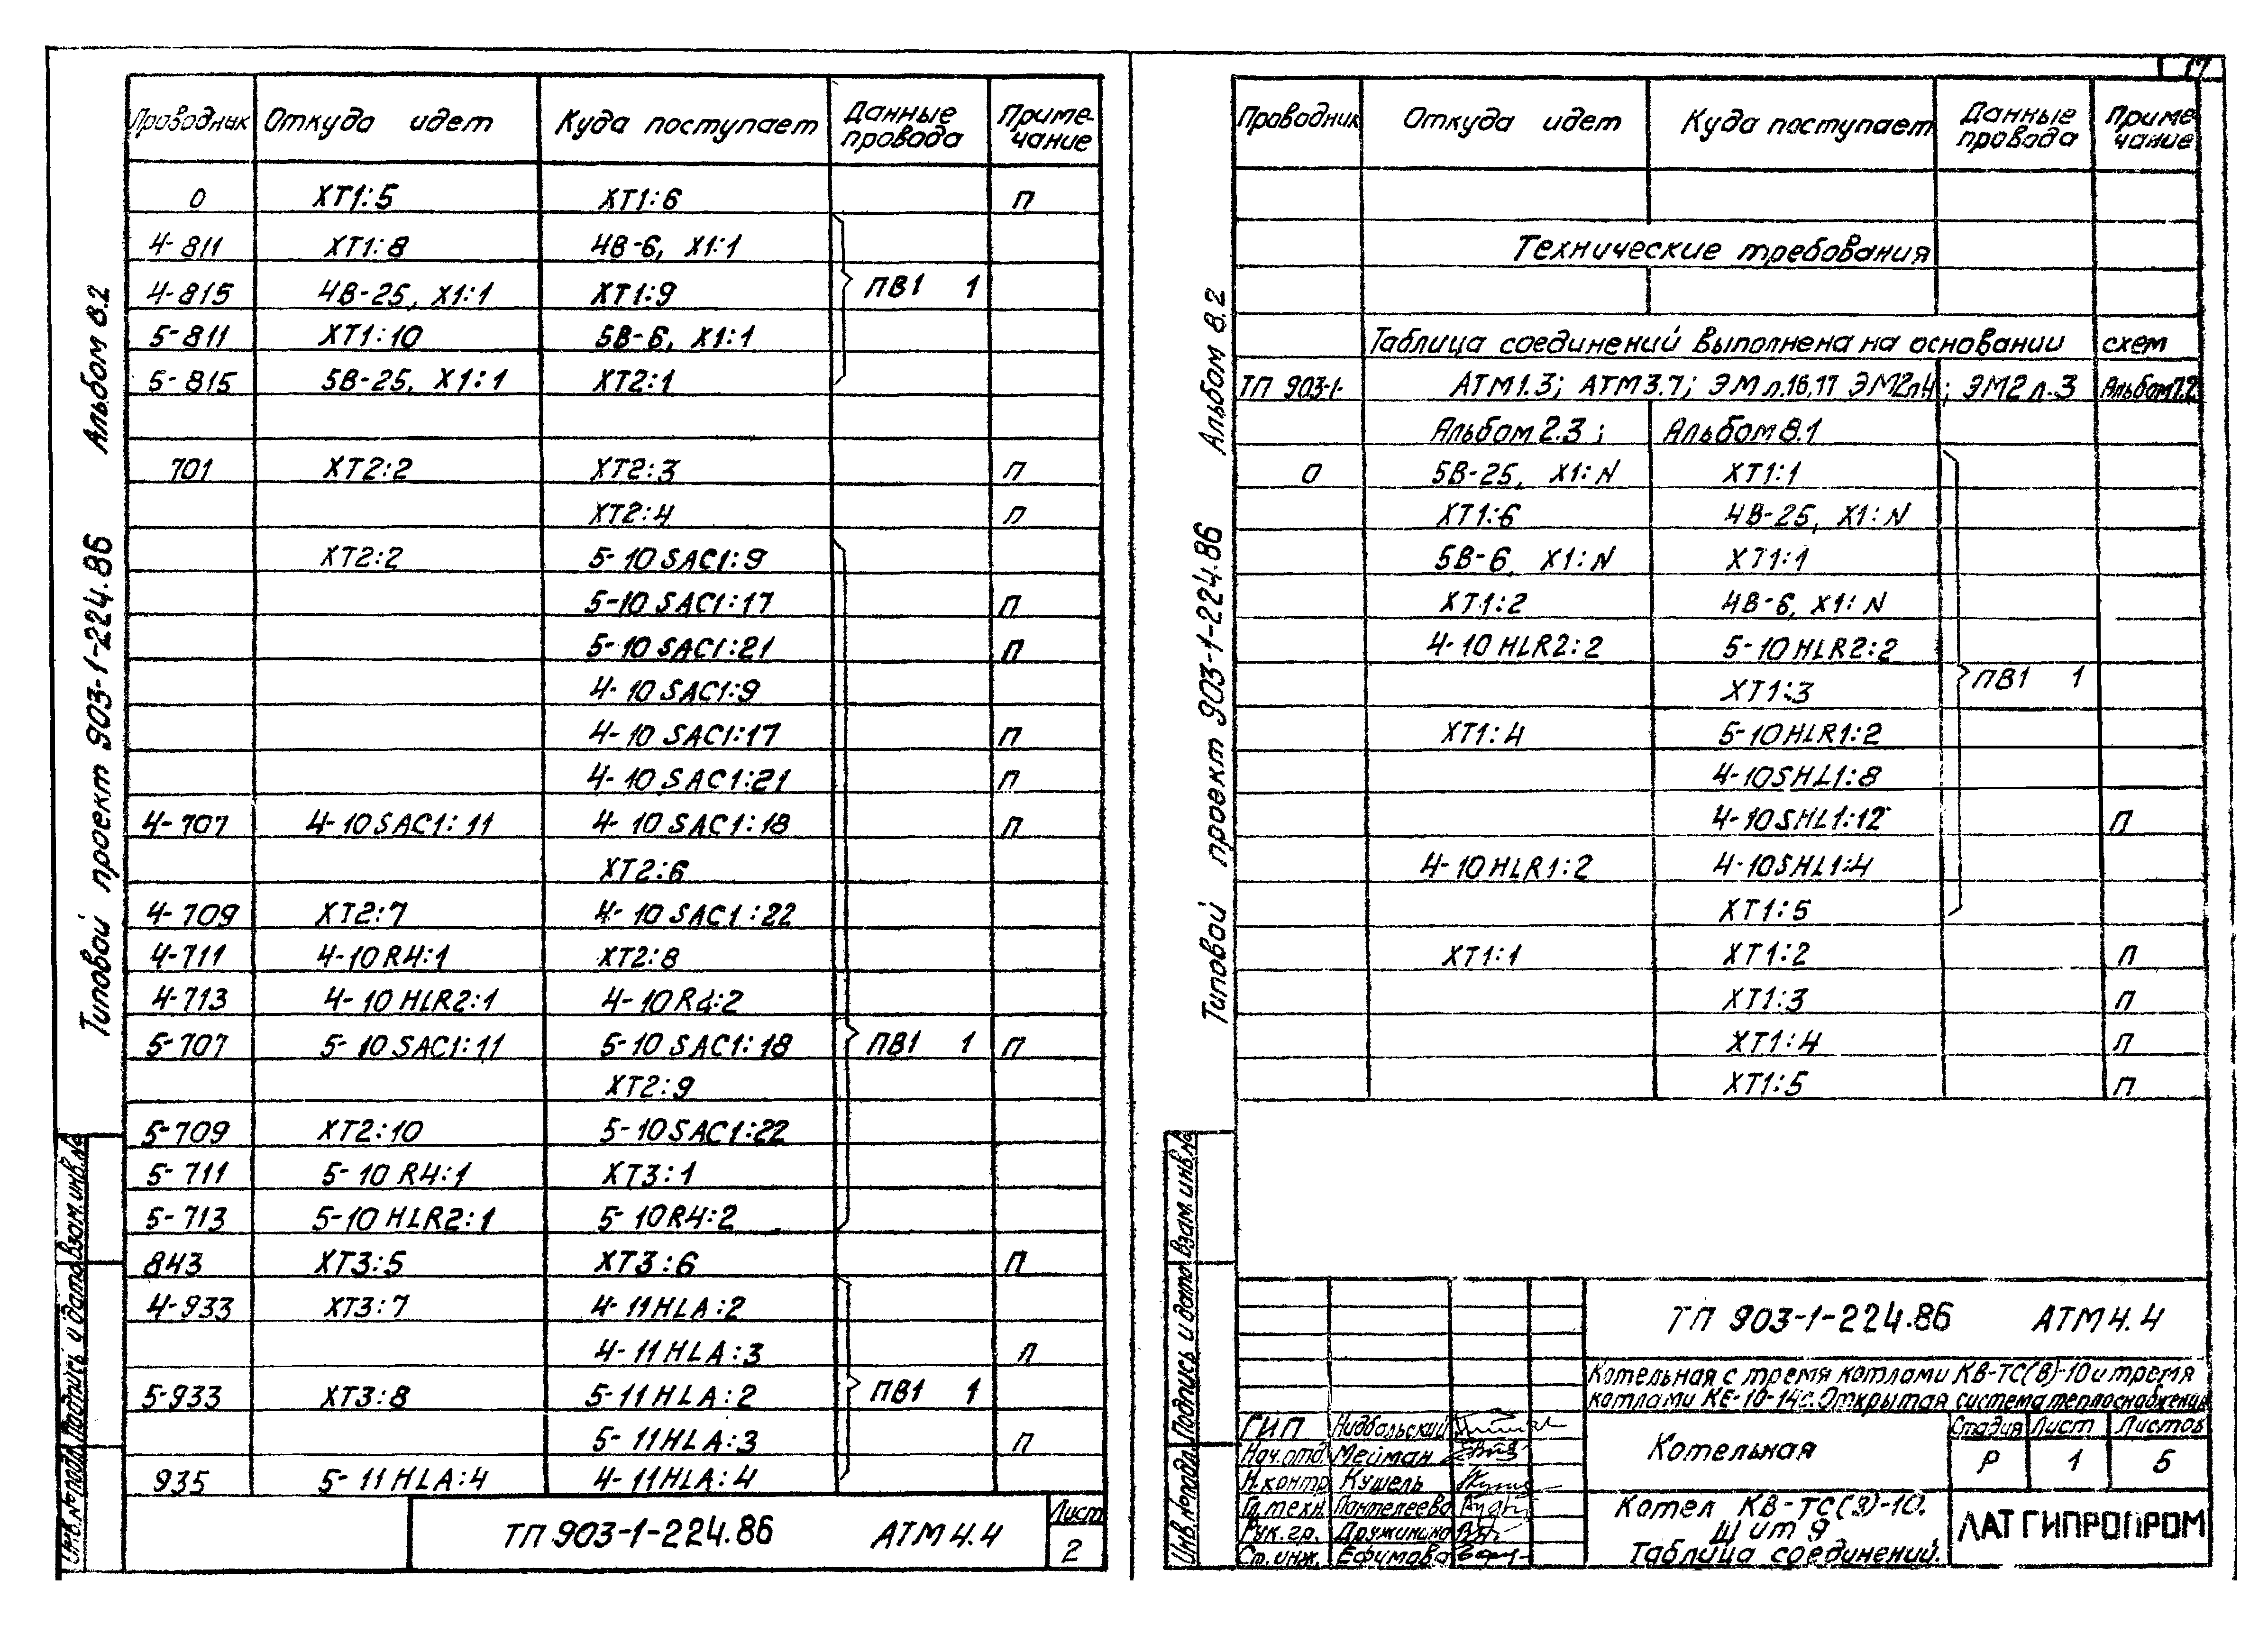 17
Альбом 8.2
Типовой проект 903-1-224.86
Проводник Откуда идет Куда поступает Данные провода Примечание
0 ХТ1:5 ХТ1:6 П
4-811 ХТ1:8 4В-6, Х1:1
4-815 4В-25, Х1:1 ХТ1:9 ПВ1 1
5-811 ХТ1:10 5В-6, Х1:1
5-815 5В-25, Х1:1 ХТ2:1
701 ХТ2:2 ХТ2:3 П
ХТ2:4 П
ХТ2:2 5-10SAC1:9
5-10SAC1:17 П
5-10SAC1:21 П
4-10SAC1:9
4-10SAC1:17 П
4-10SAC1:21 П
4-707 4-10SAC1:11 4-10SAC1:18 П
ХТ2:6
4-709 ХТ2:7 4-10SAC1:22
4-711 4-10R4:1 ХТ2:8
4-713 4-10HLR2:1 4-10R4:2
5-707 5-10SAC1:11 5-10SAC1:18 ПВ1 1 П
ХТ2:9
5-709 ХТ2:10 5-10SAC1:22
5-711 5-10R4:1 ХТ3:1
5-713 5-10HLR2:1 5-10R4:2
843 ХТ3:5 ХТ3:6 П
4-933 ХТ3:7 4-11HLA:2
4-11HLA:3 П
5-933 ХТ3:8 5-11HLA:2 ПВ1 1
5-11HLA:3 П
935 5-11HLA:4 4-11HLA:4
Инв.№подл. Подпись и дата Взам.инв.№
ТП 903-1-224.86 АТМ4.4
Лист
2
Альбом 8.2
Типовой проект 903-1-224.86
Проводник Откуда идет Куда поступает Данные провода Примечание
Технические требования
Таблица соединений выполнена на основании схем
ТП 903-1- АТМ1.3; АТМ3.7; ЭМ л.16,17 ЭМ2л.4; ЭМ2 л.3 Альбом7.2
Альбом 2.3; Альбом 8.1
0 5В-25, Х1:N ХТ1:1
ХТ1:6 4В-25, Х1:N
5В-6, Х1:N ХТ1:1
ХТ1:2 4В-6, Х1:N
4-10HLR2:2 5-10HLR2:2
ХТ1:3 ПВ1 1
ХТ1:4 5-10HLR1:2
4-10SHL1:8
4-10SHL1:12 П
4-10HLR1:2 4-10SHL1:4
ХТ1:5
ХТ1:1 ХТ1:2 П
ХТ1:3 П
ХТ1:4 П
ХТ1:5 П
Инв.№подл. Подпись и дата Взам.инв.№
ТП 903-1-224.86 АТМ4.4
Котельная с тремя котлами КВ-ТС(В)-10 и тремя
котлами КЕ-10-14с. Открытая система теплоснабжения
ГИП Нидбальский
Нач.отд. Мейман
Н.контр Кушель
Гл.техн. Пантелеева
Рук.гр. Дружинина
Ст.инж. Ефимова
Котельная
Стадия Лист Листов
Р 1 5
Котел КВ-ТС(З)-10.
Щит 9
Таблица соединений.
ЛАТГИПРОПРОМ